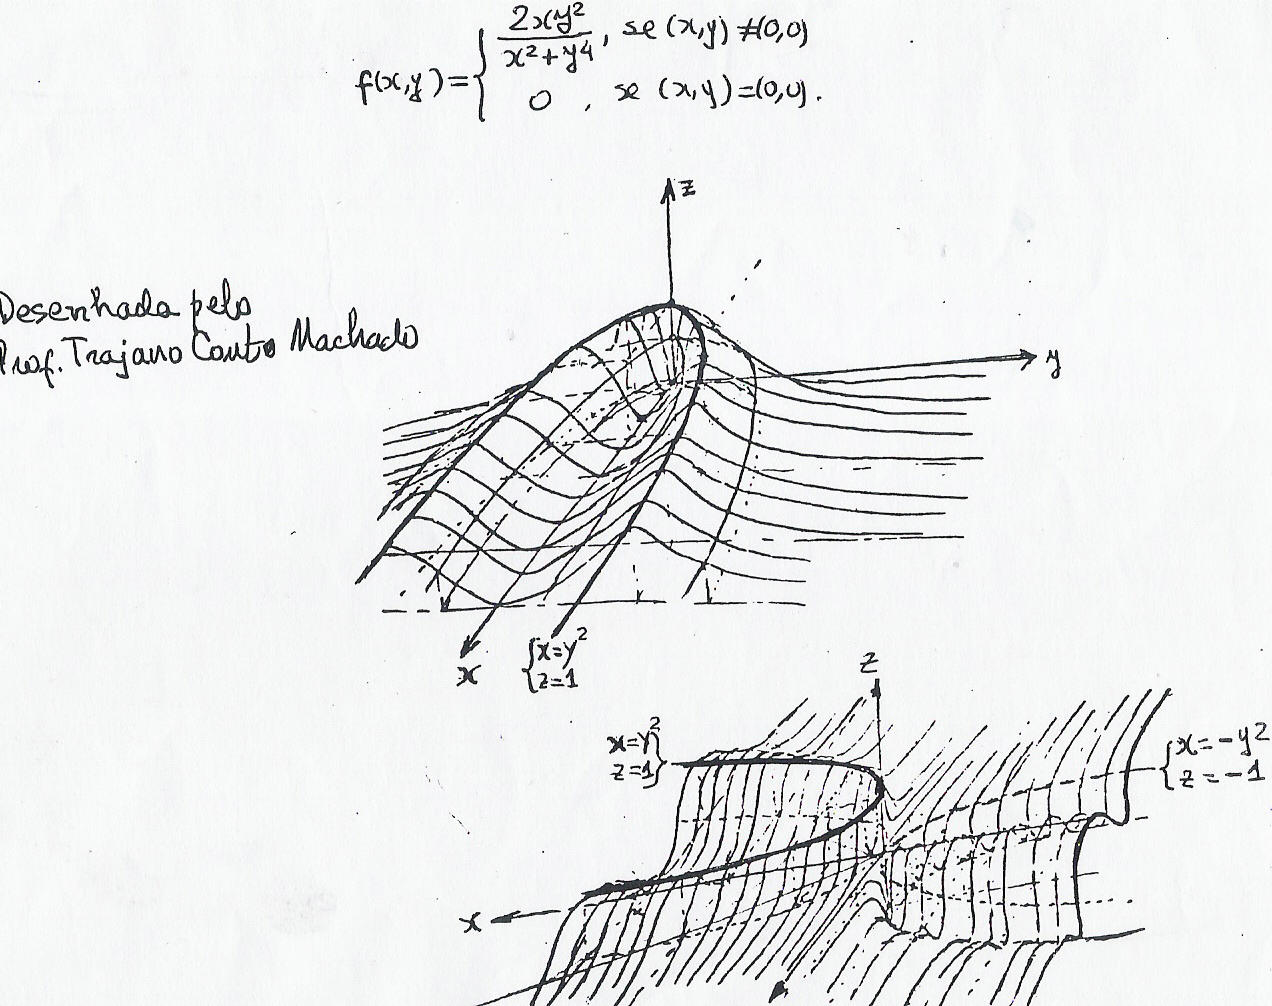 f(x,y)={ 2xy²/x²+y⁴, se (x,y) ≠(0,0)
0 , se (x,y)=(0,0).
z
Desenhada pelo
Prof. Trajano Couto Machado
y
x
{x=y²
z=1
z
x=y²}
z=1
{x=-y²
z=-1
x